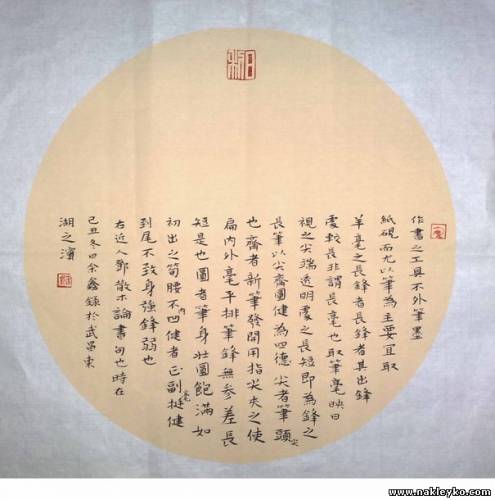 作書之工具不外筆墨
紙硯而尤以筆為主要宜取
羊毫之長鋒者長鋒者其出鋒
處較長非謂長毫也取筆毫映日
視之尖端透明處之長短即為鋒之
長筆以尖齋圓健為四德尖者筆頭尖
也齋者新筆發開用指尖夾之使
扁内外毫平排筆鋒無參差長
短是也圓者筆身壯圓飽滿如
初出之筍腰不内凹健者正副毫挺健
到尾不致身強鋒弱也
右近人鄧散木論書句也時在
己丑冬四余鑫錄於武昌東
湖之濱
www.nakleyko.com